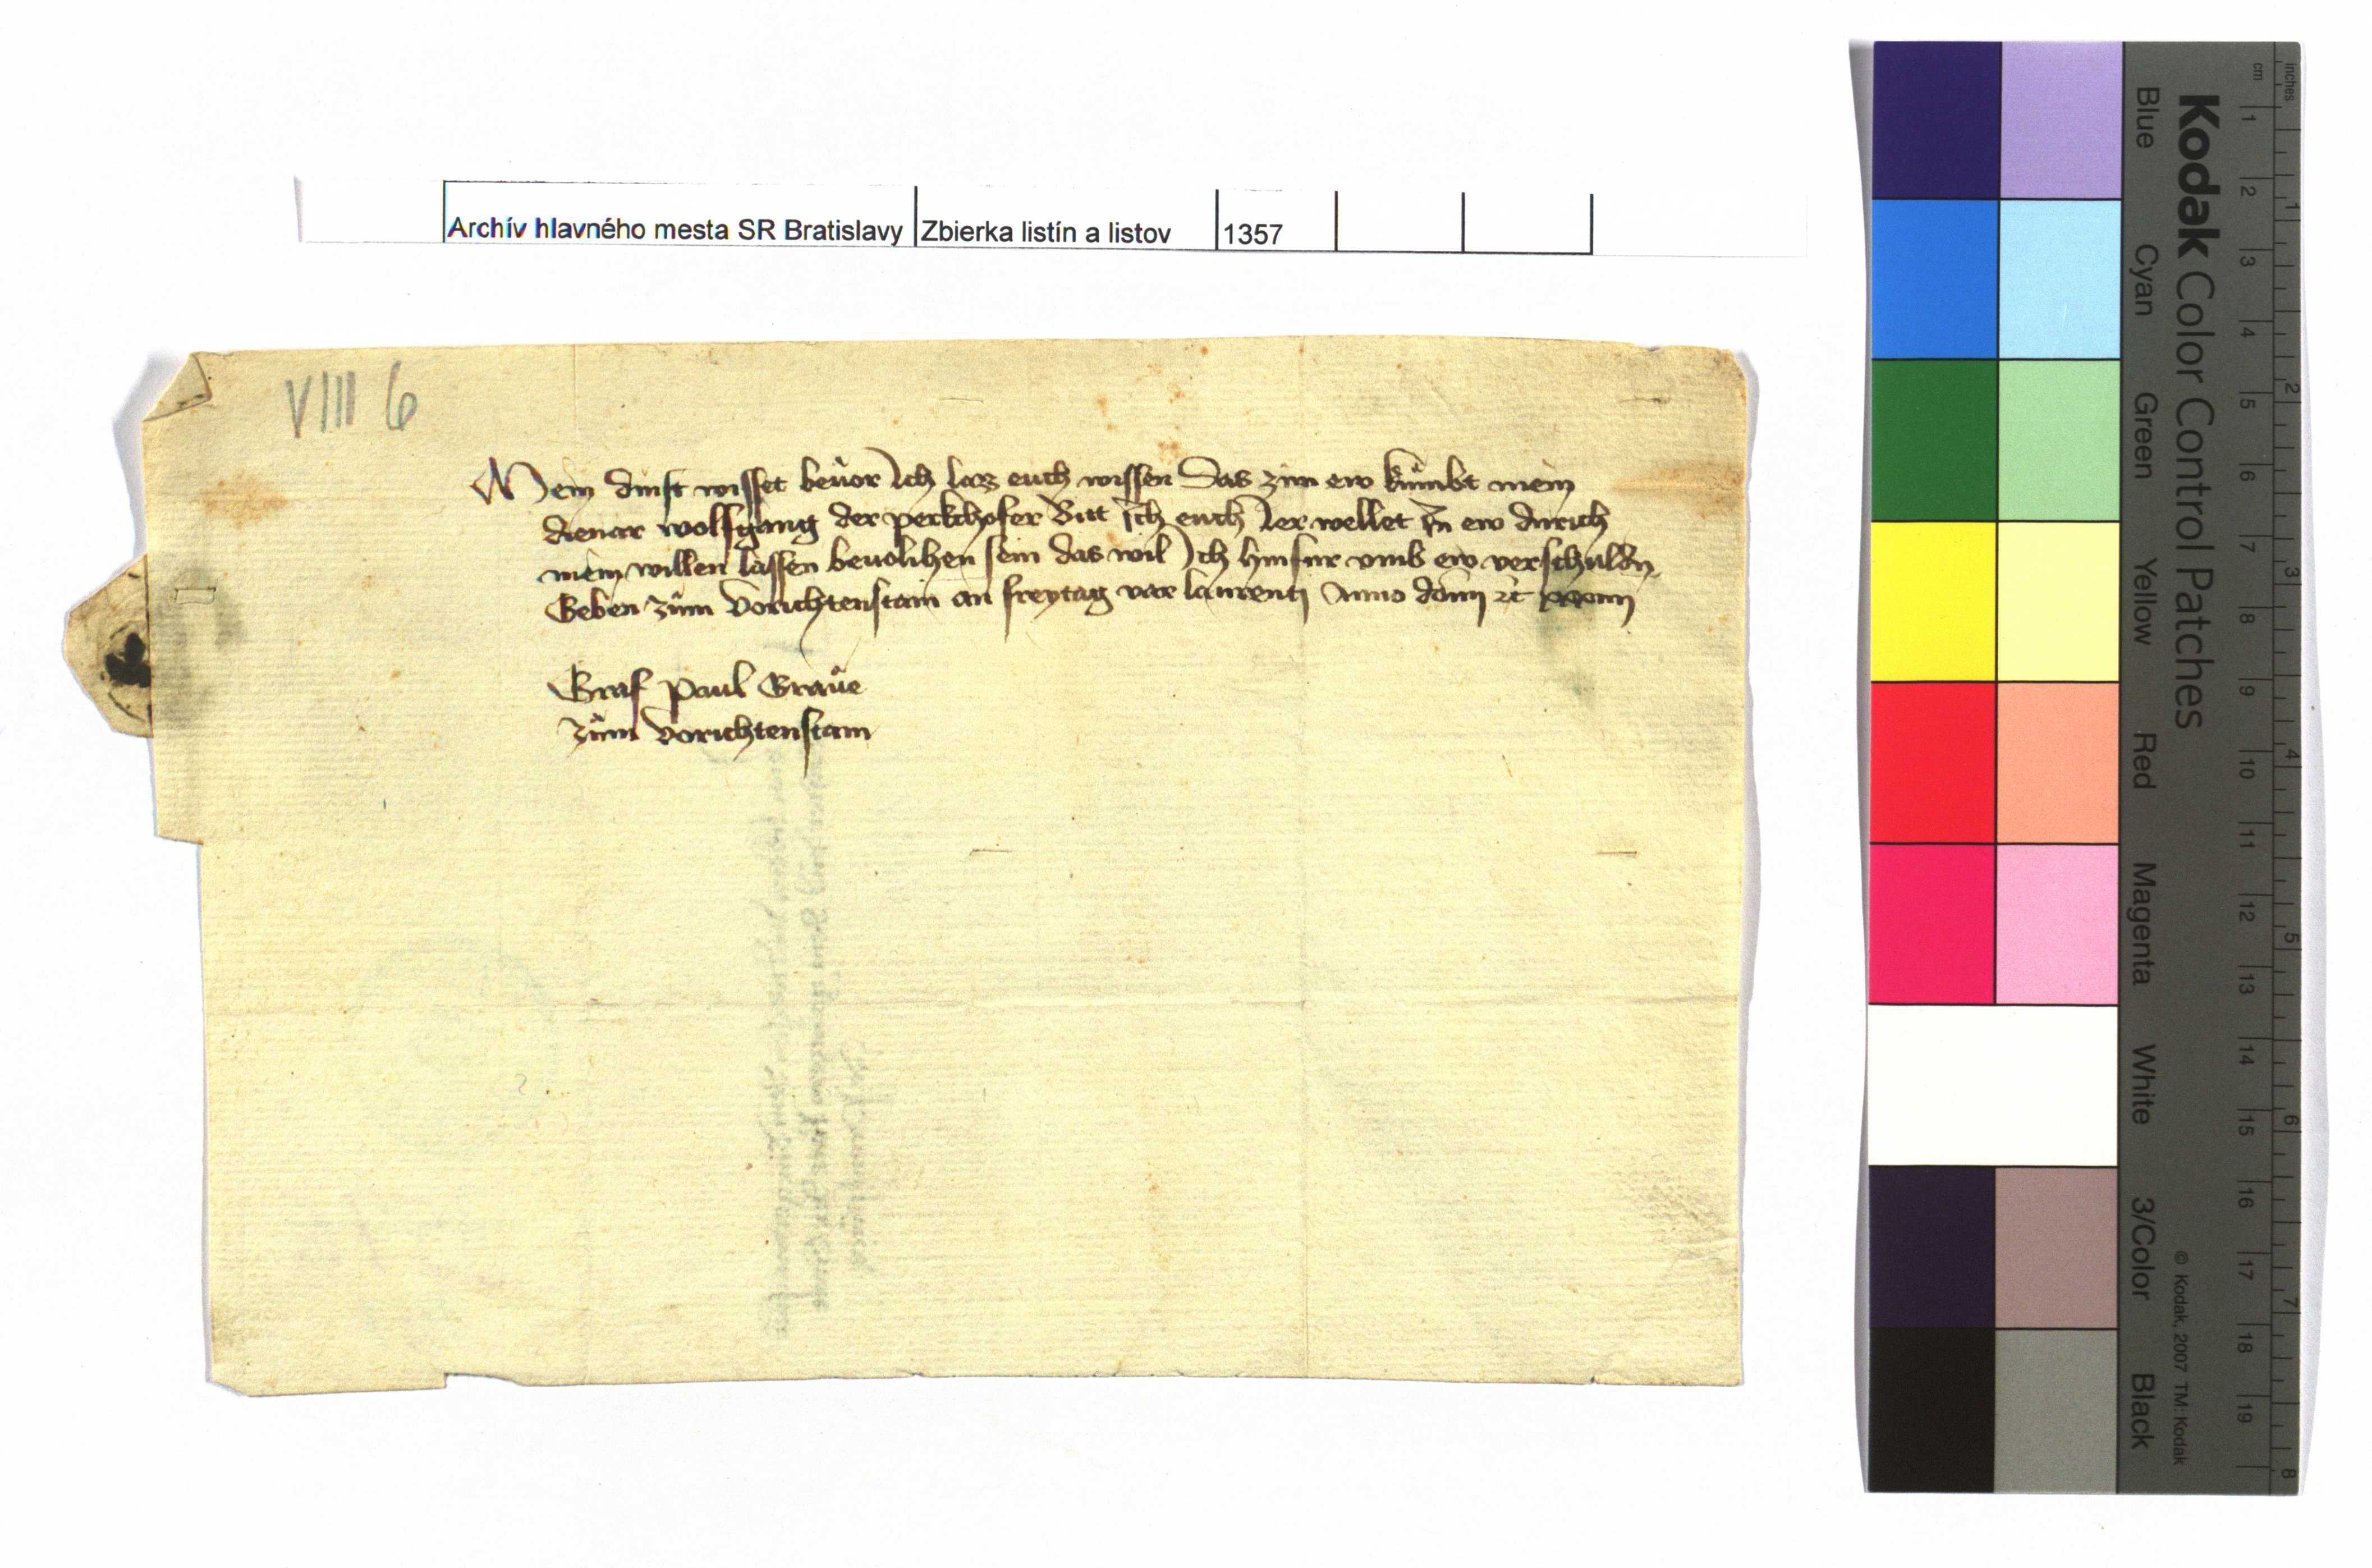 Archív hlavného mesta SR Bratislavy Zbierka listín a listov 1357
VIII 6
Mein dinst wisset beuor Ich lazz euch wissen Das zůn ew kůmbt mein
dienar wolfgang der perkchofer Bitt Ich euch Ier wellet In ew durich
mein willen lassen beuolihen sein das wil Ich hinfur vmb ew verschulden
Geben zům vorichtenstain an freytag vor laurentj Anno domini
Graf paul Graůe
zům vorichtenstain
Kodak Color Control Patches
Blue Cyan Green Yellow Red Magenta White 3/Color Black
© Kodak, 2007 TM: Kodak
cm 1 2 3 4 5 6 7 8 9 10 11 12 13 14 15 16 17 18 19
inches 1 2 3 4 5 6 7 8